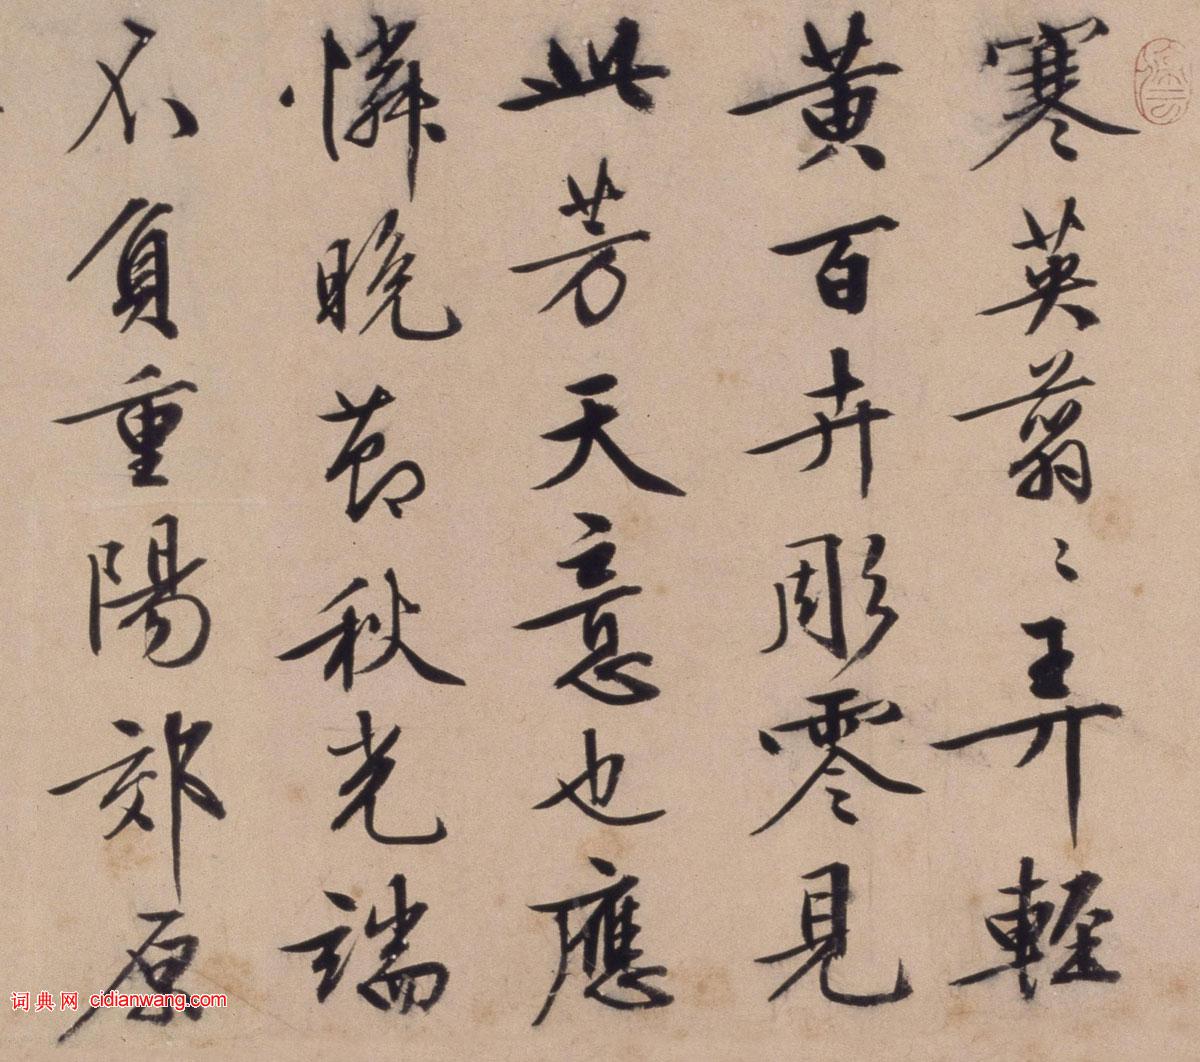 寒英蓊〻弄輕
黃百卉彫零見
此芳天意也應
憐晚節秋光端
不負重陽郊原
词典网 cidianwang.com